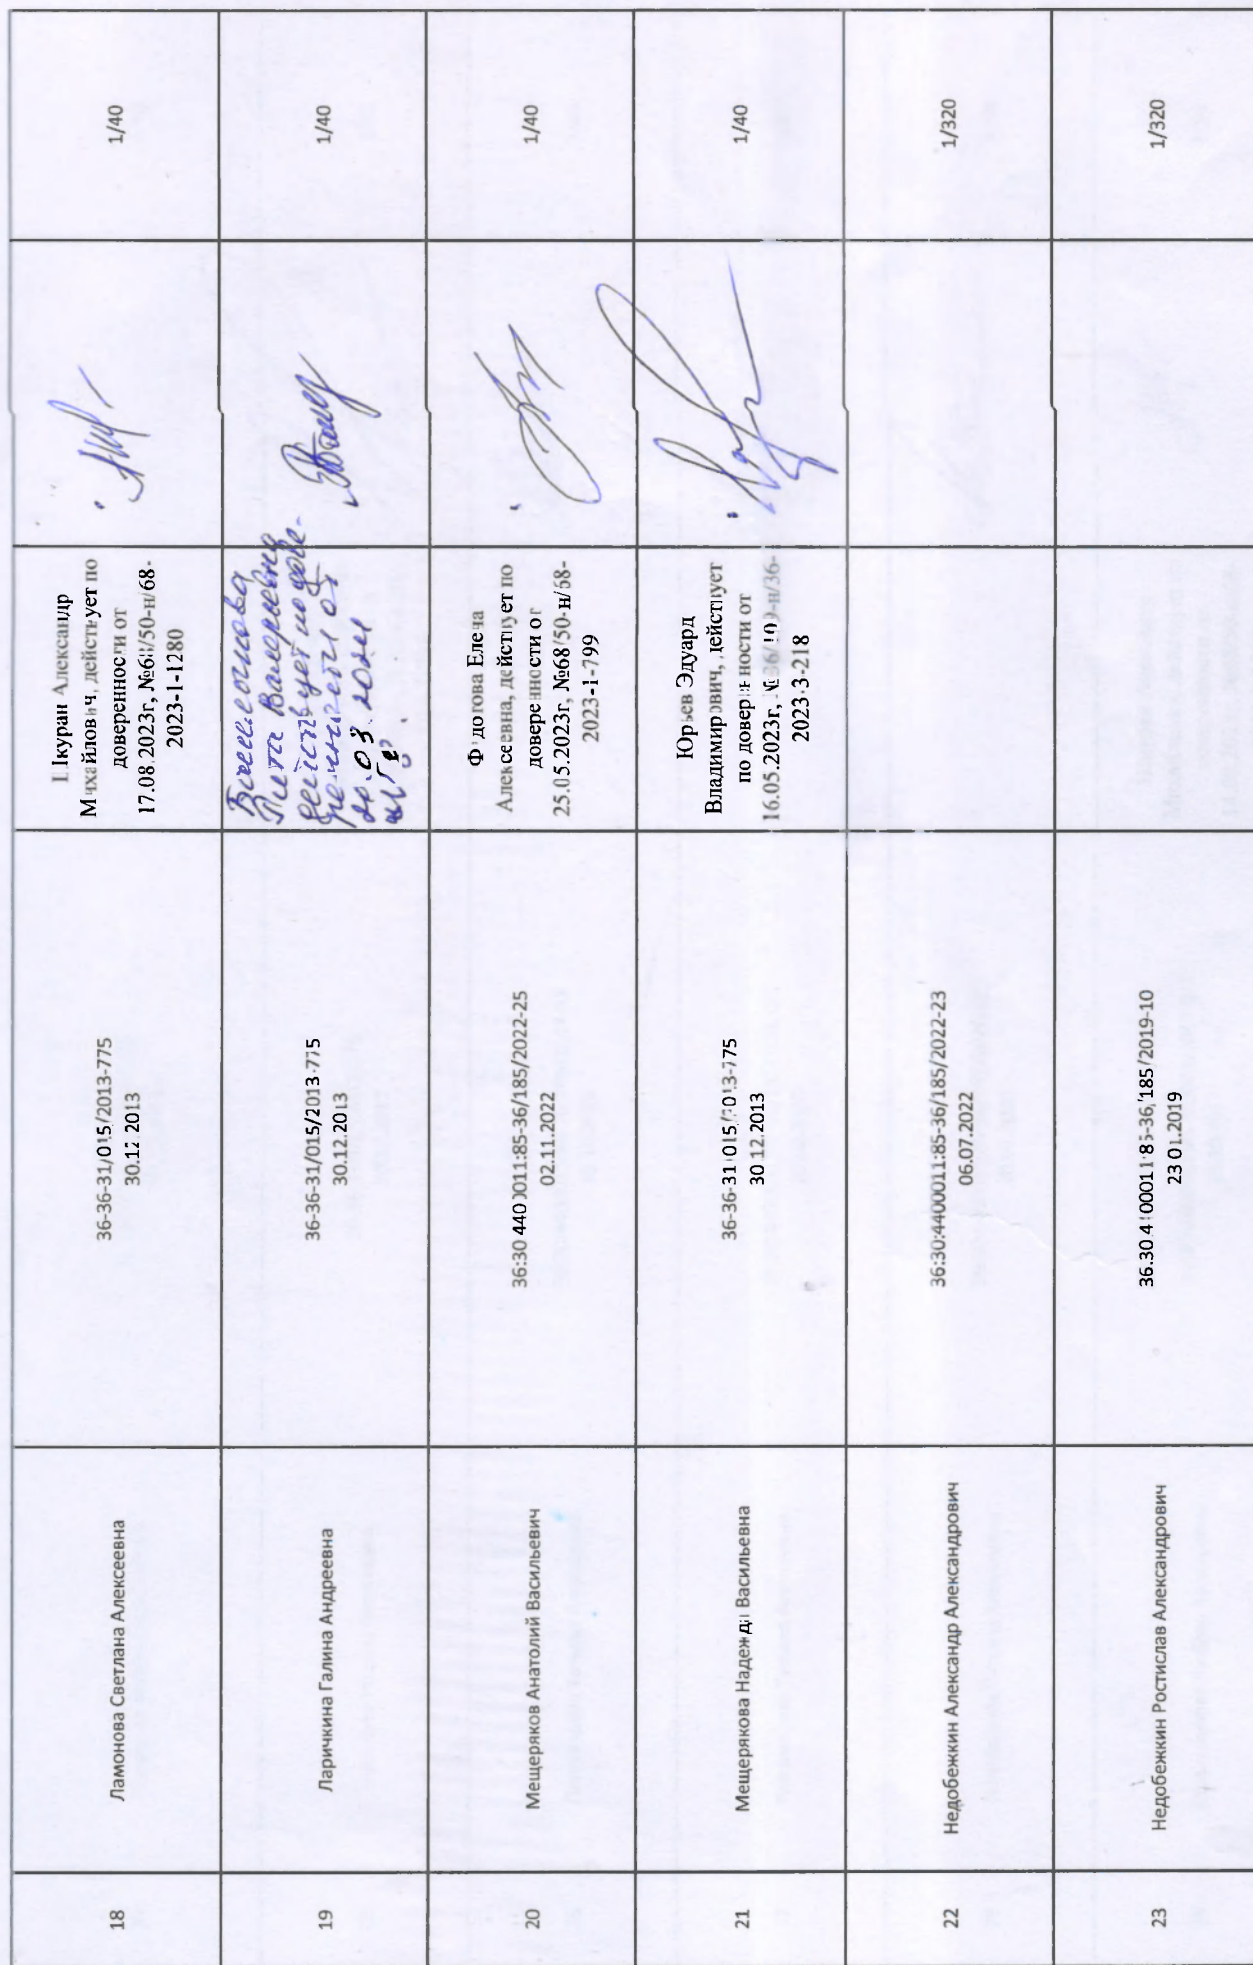 18
Ламонова Светлана Алексеевна
36-36-31/015/2013-775
30.12.2013
Шкуран Александр
Михайлович, действует по
доверенности от
17.08.2023г, №68/50-н/68-
2023-1-1280
1/40
19
Ларичкина Галина Андреевна
36-36-31/015/2013-775
30.12.2013
Валериевна
действует по дове-
ренности от
03.2024
1/40
20
Мещеряков Анатолий Васильевич
36:30:4400011:85-36/185/2022-25
02.11.2022
Федотова Елена
Алексеевна, действует по
доверенности от
25.05.2023г, №68/50-н/68-
2023-1-799
1/40
21
Мещерякова Надежда Васильевна
36-36-31/015/2013-775
30.12.2013
Юрьев Эдуард
Владимирович, действует
по доверенности от
16.05.2023г, №36/109-н/36-
2023-3-218
1/40
22
Недобежкин Александр Александрович
36:30:4400011:85-36/185/2022-23
06.07.2022
1/320
23
Недобежкин Ростислав Александрович
36:30:4400011:85-36/185/2019-10
23.01.2019
1/320